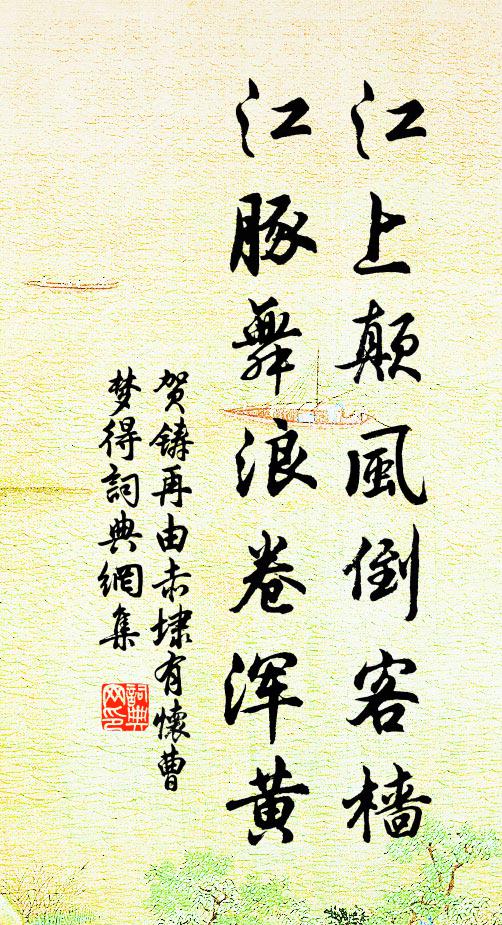 江上颠風倒客檣
江豚舞浪卷浑黄
贺铸再由赤埭有懷曹
梦得詞典網集
詞典网印